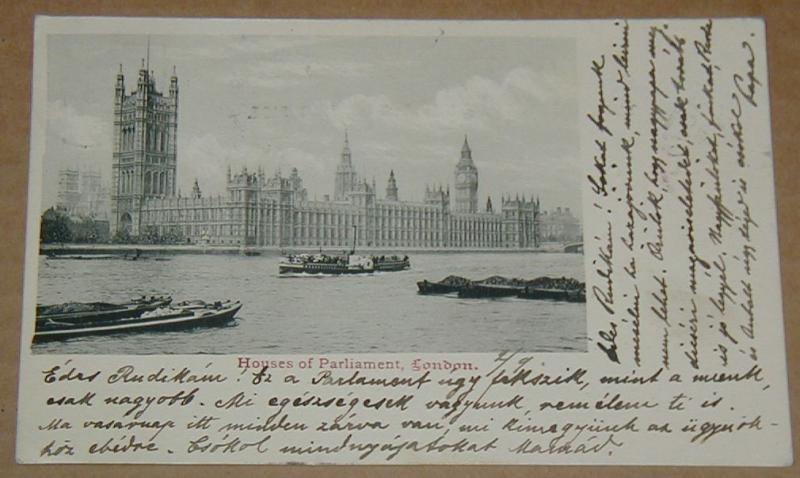 Houses of Parliament, London.
2/9
Édes Rudikám! Ez a Parlament ugy fékszik, mint a mienk,
csak nagyobb. Mi egészségesek vagyunk, remélem ti is.
Ma vasárnap itt minden zárva van, mi kimegyünk az ügynök-
höz ebédre. Csókol mindnyájatokat Mamád.
Édes Rudikám! Sokat fogunk
mesélni ha hazajövünk, mind leirni
nem lehet. Örülök hogy nagypapa meg
dicséri magaviseletedet, csak továbbra
is jó legyél. Nagyszülőket,
és téged is csókol
Papa